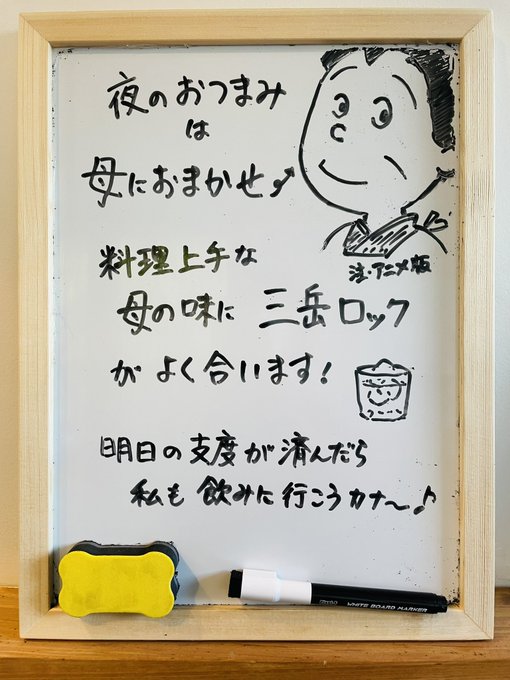 夜のおつまみ
は
母におまかせ♪
料理上手な
注・アニメ版
母の味に 三岳ロック
が よく合います!
明日の支度が済んだら
私も 飲みに行こうカナ〜♪
WHITE BOARD MARKER